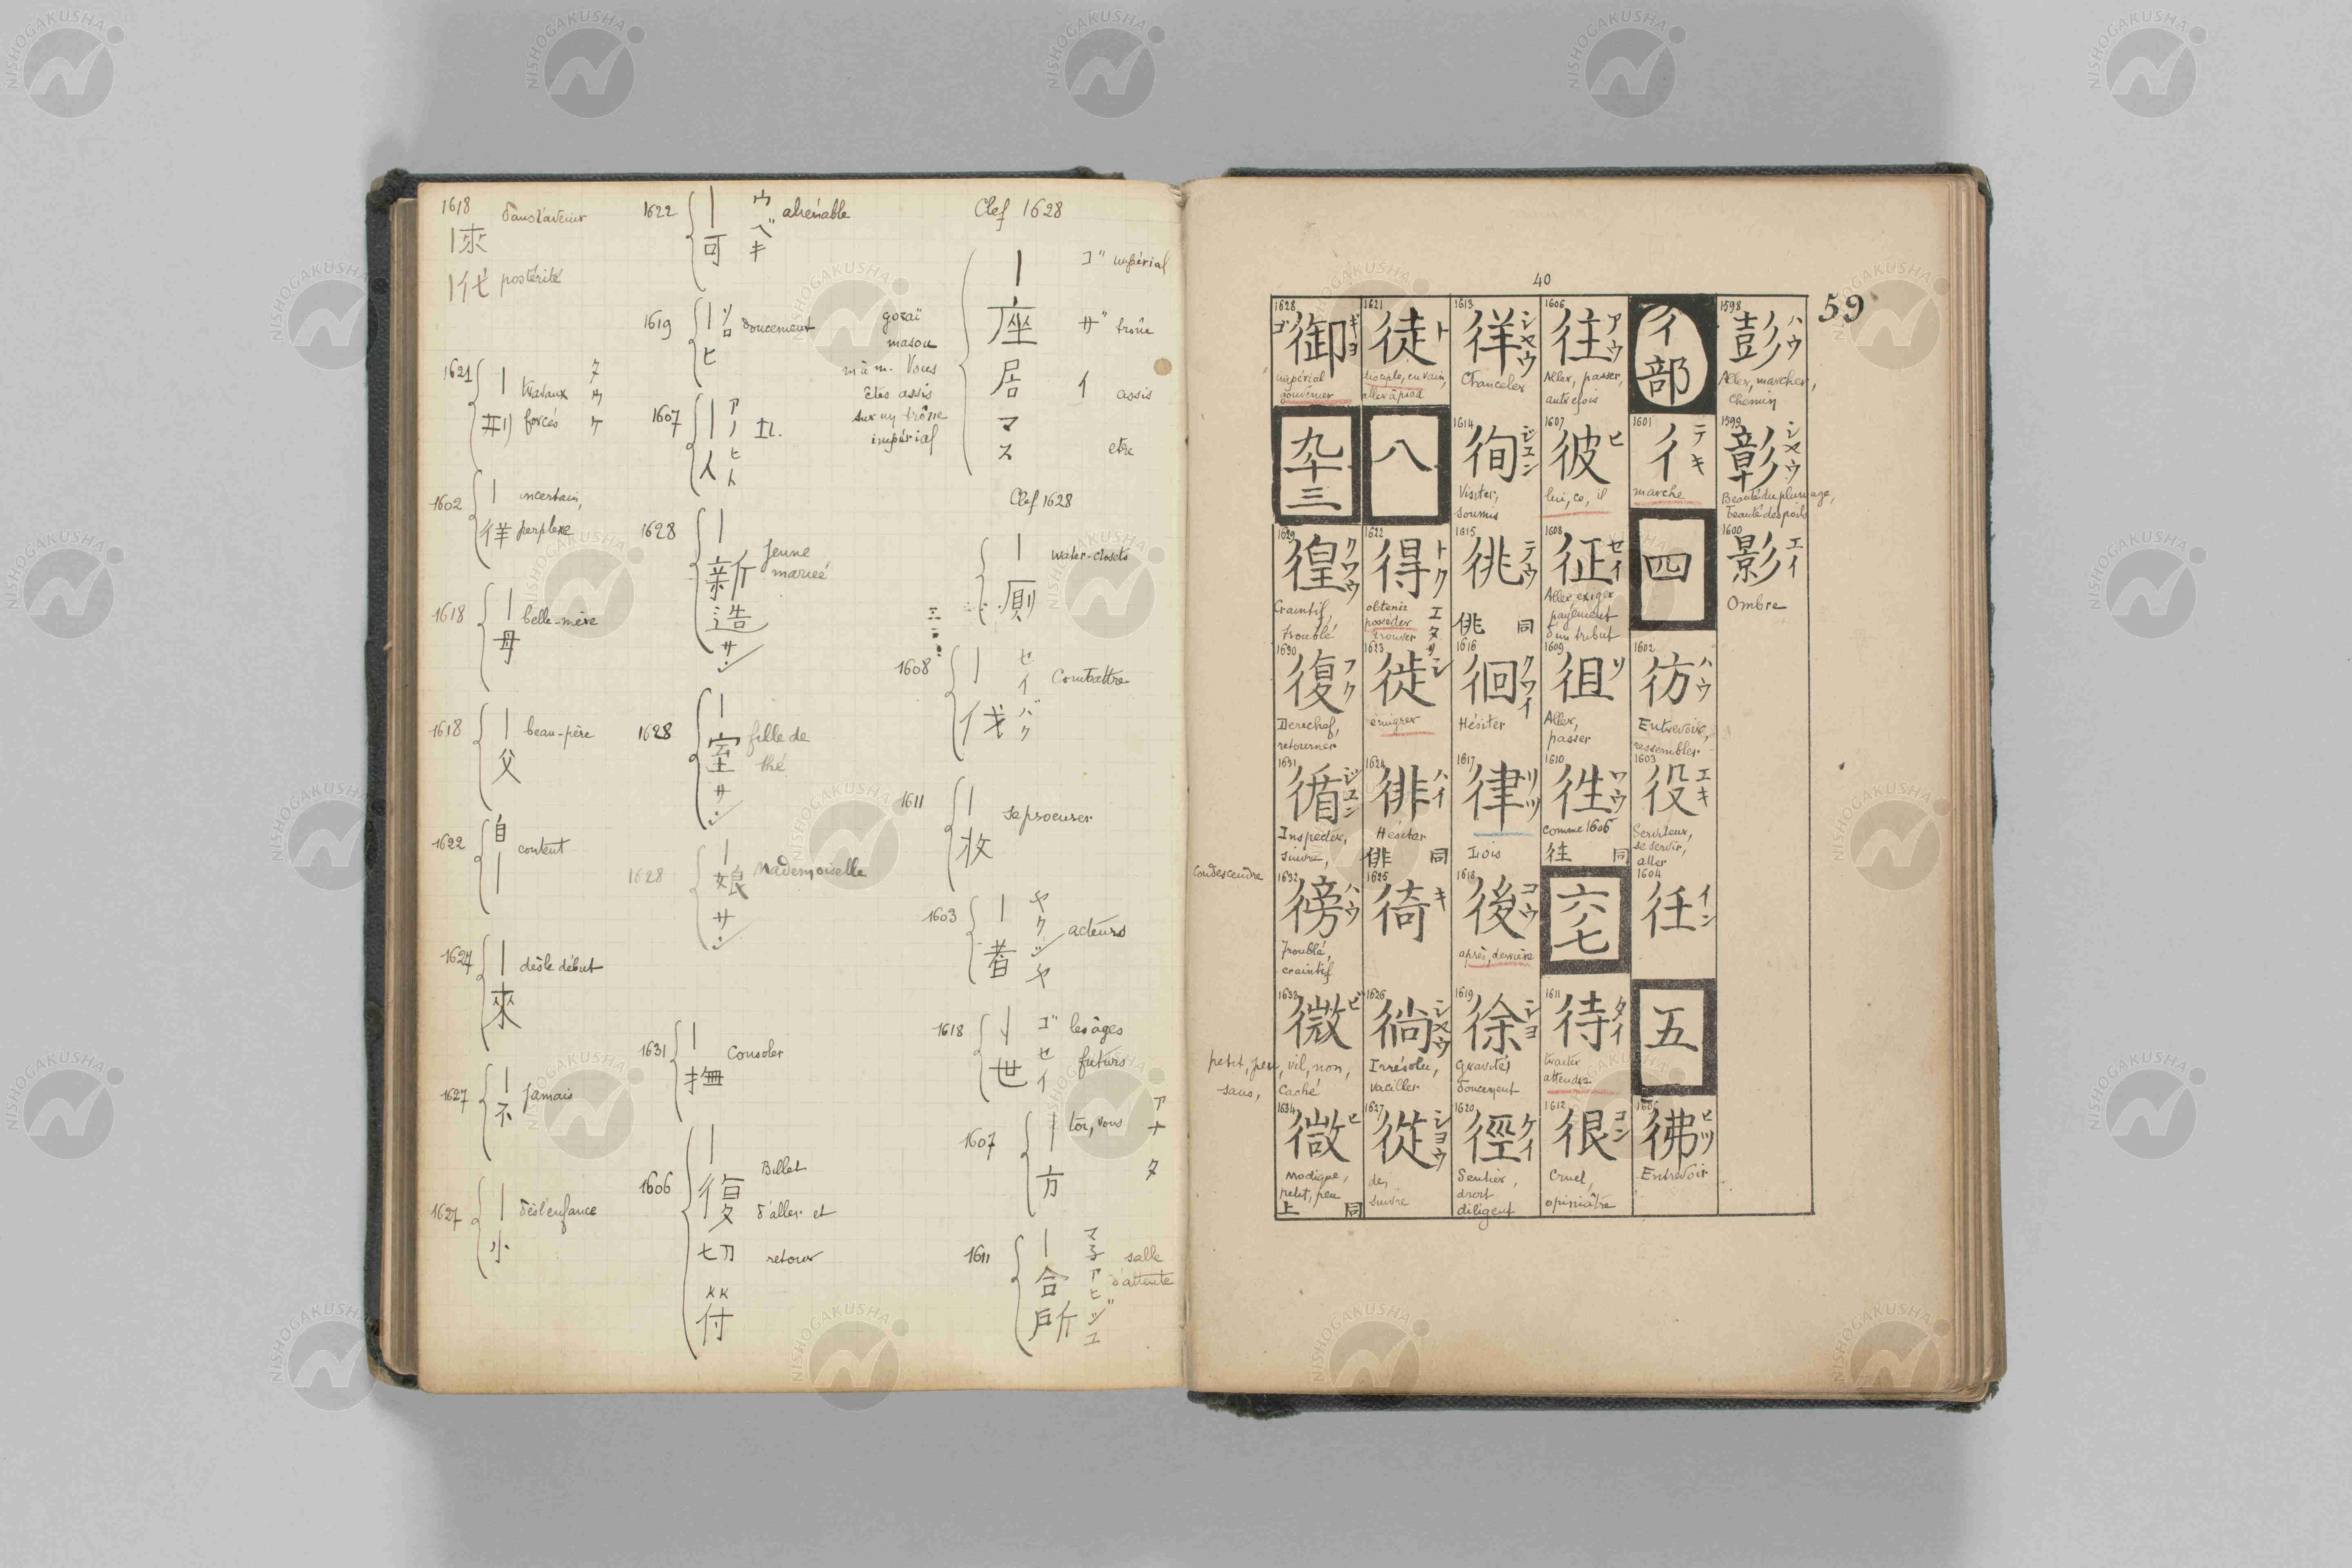 1618 dans l'avenir
丨來
丨代 postérité
1621 丨 travaux ク
刑 forcés ウ
ケ
1602 丨 incertain,
徉 perplexe
1618 丨 belle-mère
母
1618 丨 beau-père
父
1622 自 content
丨
1627 丨 dès le début
來
1627 丨 jamais
不
1627 丨 dès l'enfance
小
1622 丨 ウ
可 ベキ
1619 丨 ソロ doucement
ヒ
1607 丨 アノ Il.
人 ヒト
1628 丨
新 Jeune
造 mariée
サン
1628 丨
室 fille de
thé
サン
1628 丨
娘 Mademoiselle
サン
1631 丨 Consoler
撫
1606 丨 Billet
復 d'aller et
切 retour
符
Clef 1628
丨 ゴ impérial
座 ザ trône
居 イ assis
マ
ス etre
gozaï
masou
m à m. Vous
êtes assis
sur un trône
impérial
Clef 1628
丨 water-closets
厠
1608 丨 セイ Combattre
伐 バク
1611 丨 se procurer
1603 丨 ヤク acteurs
者 シヤ
1618 丨 ゴ les âges
世 セイ futurs
1607 丨 toi, vous アナタ
方
1611 丨 salle
合 d'attente
所
40
59
1598 彭 ハウ
Aller, marcher,
Chemin
1599 彰 シヤウ
Beauté du plumage,
beauté des poils
1600 影 エイ
Ombre
彳部
1601 彳 テキ
marche
四
1602 彷 ハウ
Entrevoir,
ressembler
1603 役 エキ
Serviteur,
se servir,
aller
1604 任 イン
五
1605 彿 ヒツ
Entrevoir
1606 往 アウ
Aller, passer,
autrefois
1607 彼 ヒ
lui, ce, il
1608 征 セイ
Aller, exiger
payement
d'un tribut
1609 徂 ソ
Aller,
passer
1610 徃 ワウ
comme 1606
徃 同
六七
1611 待 タイ
traiter
attendre
1612 很 コン
Cruel,
opiniâtre
1613 徉 シヤウ
Chanceler
1614 徇 ジユン
Visiter,
soumis
1615 徘 テウ
佻 同
1616 徊 クワイ
Hésiter
1617 律 リツ
Lois
1618 後 コウ
après, derrière
1619 徐 シヨ
Gravité
doucement
1620 徑 ケイ
Sentier,
droit
diligent
1621 徒 ト
disciple, en vain,
aller à pied
八
1622 得 トク
obtenir エタリ
posséder
trouver
1623 徙 シ
émigrer
1624 徘 ハイ
Hésiter
俳 同
1625 徛 キ
1626 徜 シヤウ
Irrésolu,
vaciller
1627 從 シヨウ
de,
suivre
1628 御 ギヨ ゴ
impérial
gouverner
九十三
1629 徨 クワウ
Craintif,
troublé
1630 復 フク
Derechef,
retourner
1631 循 ジユン
Inspecter,
suivre,
condescendre
1632 徬 ハウ
Troublé,
craintif
1633 微 ビ
petit, peu, vil, non,
sans, Caché
1634 徴 ヒ
Modique,
petit, peu
上 同